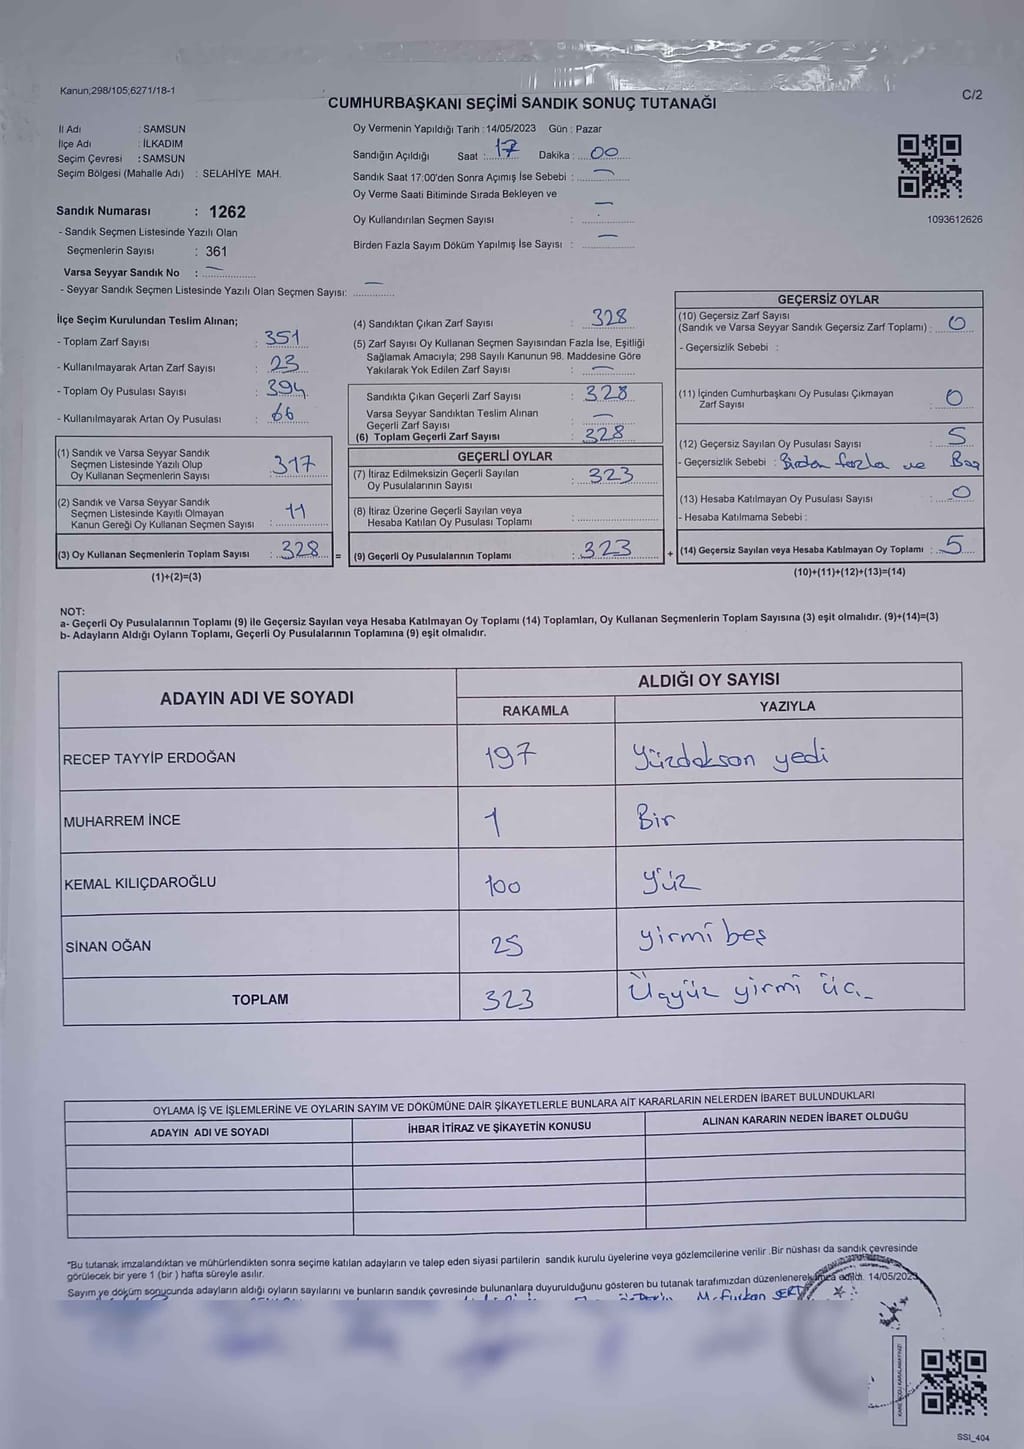 Kanun;298/105;6271/18-1
C/2
CUMHURBAŞKANI SEÇİMİ SANDIK SONUÇ TUTANAĞI
İl Adı : SAMSUN
İlçe Adı : İLKADIM
Seçim Çevresi : SAMSUN
Seçim Bölgesi (Mahalle Adı) : SELAHİYE MAH.
Sandık Numarası : 1262
- Sandık Seçmen Listesinde Yazılı Olan
Seçmenlerin Sayısı : 361
Varsa Seyyar Sandık No : —
- Seyyar Sandık Seçmen Listesinde Yazılı Olan Seçmen Sayısı: —
Oy Vermenin Yapıldığı Tarih : 14/05/2023 Gün : Pazar
Sandığın Açıldığı Saat : 17 Dakika : 00
Sandık Saat 17:00'den Sonra Açımış İse Sebebi : —
Oy Verme Saati Bitiminde Sırada Bekleyen ve
Oy Kullandırılan Seçmen Sayısı : —
Birden Fazla Sayım Döküm Yapılmış İse Sayısı : —
1093612626
İlçe Seçim Kurulundan Teslim Alınan;
- Toplam Zarf Sayısı : 351
- Kullanılmayarak Artan Zarf Sayısı : 23
- Toplam Oy Pusulası Sayısı : 394
- Kullanılmayarak Artan Oy Pusulası : 66
(1) Sandık ve Varsa Seyyar Sandık
Seçmen Listesinde Yazılı Olup
Oy Kullanan Seçmenlerin Sayısı : 317
(2) Sandık ve Varsa Seyyar Sandık
Seçmen Listesinde Kayıtlı Olmayan
Kanun Gereği Oy Kullanan Seçmen Sayısı : 11
(3) Oy Kullanan Seçmenlerin Toplam Sayısı : 328 =
(1)+(2)=(3)
(4) Sandıktan Çıkan Zarf Sayısı : 328
(5) Zarf Sayısı Oy Kullanan Seçmen Sayısından Fazla İse, Eşitliği
Sağlamak Amacıyla; 298 Sayılı Kanunun 98. Maddesine Göre
Yakılarak Yok Edilen Zarf Sayısı : —
Sandıkta Çıkan Geçerli Zarf Sayısı : 328
Varsa Seyyar Sandıktan Teslim Alınan
Geçerli Zarf Sayısı : —
(6) Toplam Geçerli Zarf Sayısı : 328
GEÇERLİ OYLAR
(7) İtiraz Edilmeksizin Geçerli Sayılan
Oy Pusulalarının Sayısı : 323
(8) İtiraz Üzerine Geçerli Sayılan veya
Hesaba Katılan Oy Pusulası Toplamı :
(9) Geçerli Oy Pusulalarının Toplamı : 323 +
GEÇERSİZ OYLAR
(10) Geçersiz Zarf Sayısı
(Sandık ve Varsa Seyyar Sandık Geçersiz Zarf Toplamı) : 0
- Geçersizlik Sebebi :
(11) İçinden Cumhurbaşkanı Oy Pusulası Çıkmayan
Zarf Sayısı : 0
(12) Geçersiz Sayılan Oy Pusulası Sayısı : 5
- Geçersizlik Sebebi : Birden fazla ve Boş
(13) Hesaba Katılmayan Oy Pusulası Sayısı : 0
- Hesaba Katılmama Sebebi :
(14) Geçersiz Sayılan veya Hesaba Katılmayan Oy Toplamı : 5
(10)+(11)+(12)+(13)=(14)
NOT:
a- Geçerli Oy Pusulalarının Toplamı (9) ile Geçersiz Sayılan veya Hesaba Katılmayan Oy Toplamı (14) Toplamları, Oy Kullanan Seçmenlerin Toplam Sayısına (3) eşit olmalıdır. (9)+(14)=(3)
b- Adayların Aldığı Oyların Toplamı, Geçerli Oy Pusulalarının Toplamına (9) eşit olmalıdır.
ADAYIN ADI VE SOYADI
ALDIĞI OY SAYISI
RAKAMLA YAZIYLA
RECEP TAYYİP ERDOĞAN 197 Yüzdokson yedi
MUHARREM İNCE 1 Bir
KEMAL KILIÇDAROĞLU 100 Yüz
SİNAN OĞAN 25 yirmi beş
TOPLAM 323 Üçyüz yirmi üç
OYLAMA İŞ VE İŞLEMLERİNE VE OYLARIN SAYIM VE DÖKÜMÜNE DAİR ŞİKAYETLERLE BUNLARA AİT KARARLARIN NELERDEN İBARET BULUNDUKLARI
ADAYIN ADI VE SOYADI İHBAR İTİRAZ VE ŞİKAYETİN KONUSU ALINAN KARARIN NEDEN İBARET OLDUĞU
"Bu tutanak imzalandıktan ve mühürlendikten sonra seçime katılan adayların ve talep eden siyasi partilerin sandık kurulu üyelerine veya gözlemcilerine verilir .Bir nüshası da sandık çevresinde
görülecek bir yere 1 (bir ) hafta süreyle asılır.
Sayım ve döküm sonucunda adayların aldığı oyların sayılarını ve bunların sandık çevresinde bulunanlara duyurulduğunu gösteren bu tutanak tarafımızdan düzenlenerek imza edildi. 14/05/2023
M. Furkan SERT
SSI_404